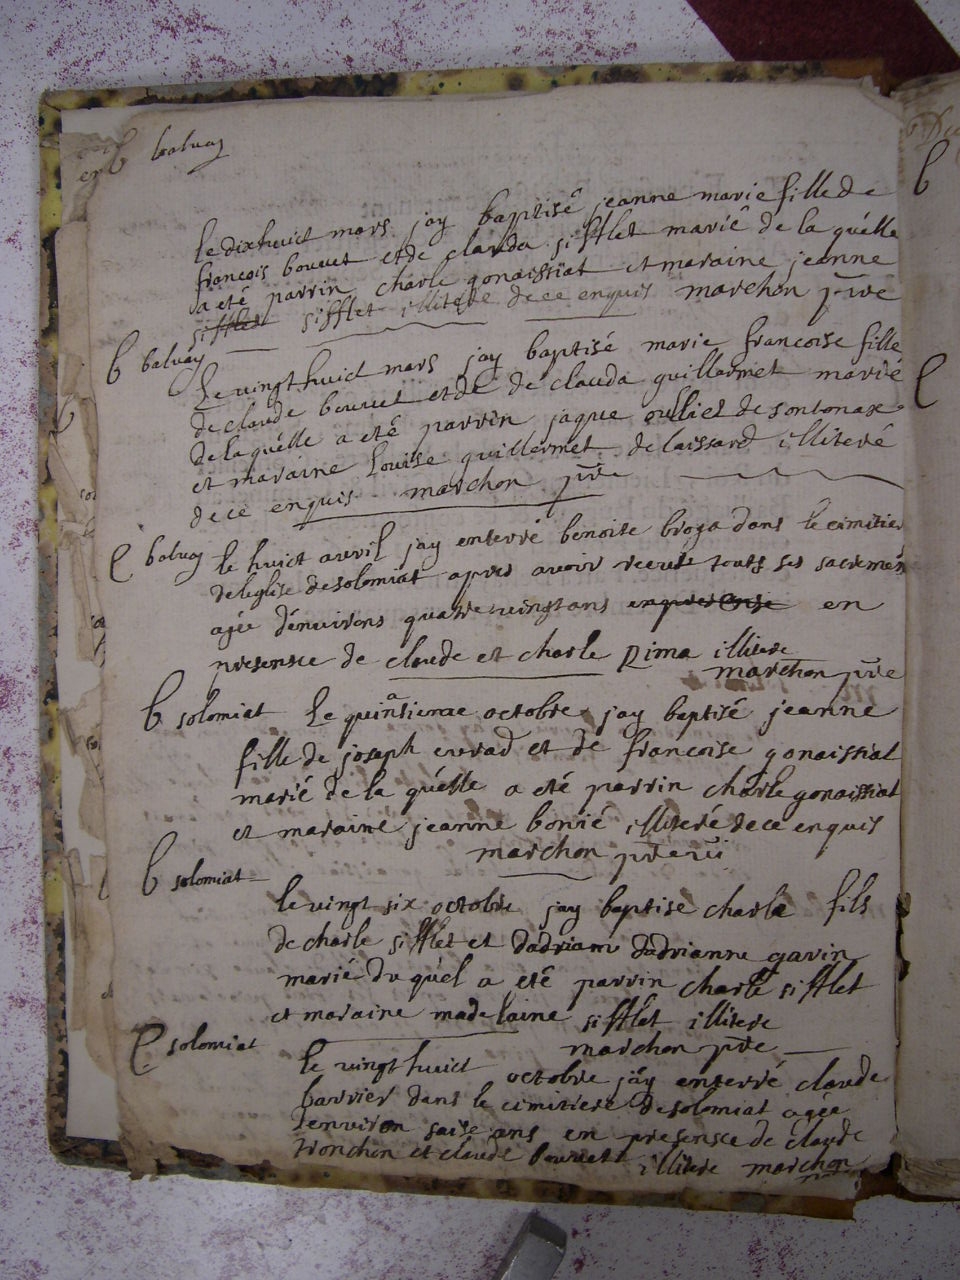 b balvay
le dixhuict mars jay baptisé jeanne marie fille de
francois bouvet et de clauda sifflet marié de la quélle
a eté parrin charle gonaissiat et maraine jeanne
sifflet sifflet illiteré de ce enquis marchon pre
b balvay
Le vingt huict mars jay baptisé marie francoise fille
de claude bouvet et de de clauda guillermet marié
de la quélle a eté parrin jaque oulliet de sontonax
et maraine Louise guillermet de laissard illiteré
de ce enquis marchon pre
E balvay le huict avril jay enterré benoite broga dans le cimitier
de leglise de solomiat apres avoir receule touts ses sacremen
agée dénvirons quatre vingt ans en
presensce de claude et charle pima illitere
marchon pre
b solomiat Le quinsieme octobre jay baptisé jeanne
fille de joseph evrad et de francoise gonaissiat
marié de la quélle a eté parrin charle gonaissiat
et maraine jeanne bonié illiteré de ce enquis
marchon
b solomiat
le vingt six octobre jay baptisé charle fils
de charle sifflet et dadriane dadrianne gavin
marié du quél a eté parrin charle sifflet
et maraine madelaine sifflet illitere
marchon pre
E solomiat
le vingt huict octobre jay enterré claude
barrier dans le cimitiere de solomiat agée
denviron saise ans en presensce de claude
tronchon et claude bouvet illitere marchon